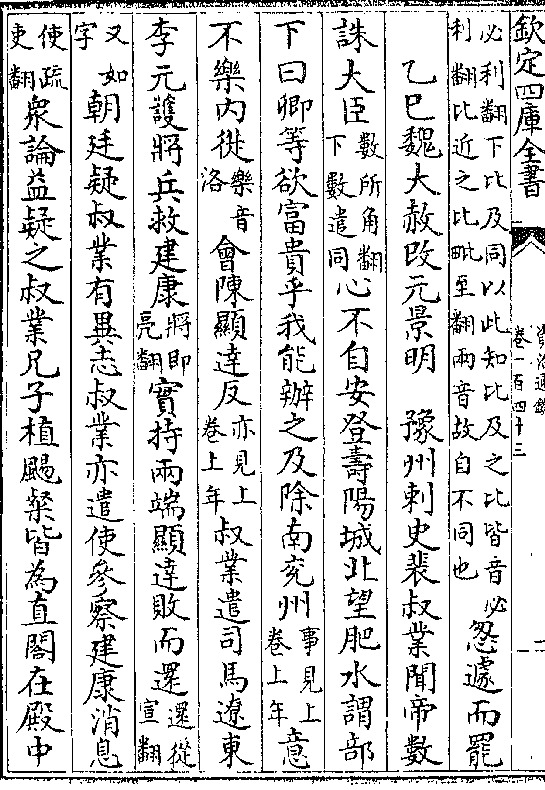 欽定四庫全書
資治通鑑
卷一百四十三
必利翻下比及同以此知比及之比皆音必
利翻比近之比毗至翻兩音故自不同也
怱遽而罷
乙巳魏大赦改元景明　豫州刺史裴叔業聞帝數
誅大臣
數所角翻
下數遣同
心不自安登壽陽城北望肥水謂部
下曰卿等欲富貴乎我能辦之及除南兖州
事見上
卷上年
意
不樂内徙
樂音
洛
會陳顯達反
亦見上
卷上年
叔業遣司馬遼東
李元護將兵救建康
將即
亮翻
實持兩端顯達敗而還
還從
宣翻
又如
字
朝廷疑叔業有異志叔業亦遣使參察建康消息
使疏
吏翻
衆論益疑之叔業兄子植颺粲皆為直閤在殿中